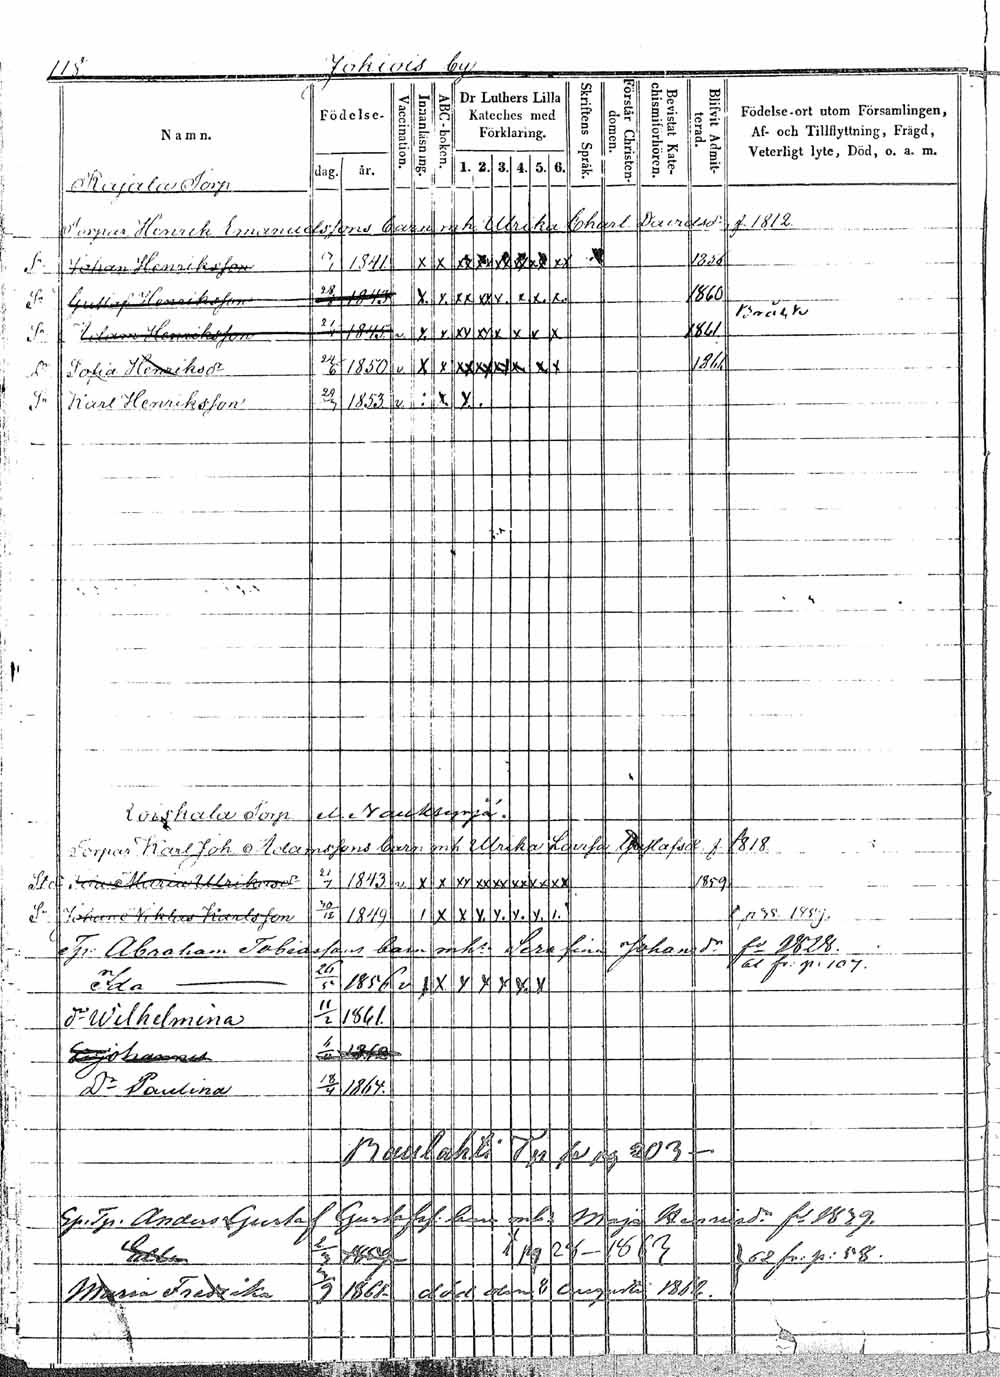 118. Johivis by
Namn.
Födelse-
dag. år.
Vaccination.
Innanläsning.
ABC-boken.
Dr Luthers Lilla Kateches med Förklaring.
1. 2. 3. 4. 5. 6.
Skriftens Språk.
Förstår Christendomen.
Bevistat Katechismiförhören.
Blifvit Admitterad.
Födelse-ort utom Församlingen,
Af- och Tillflyttning, Frägd,
Veterligt lyte, Död, o. a. m.
Rajala Torp
Torpar Henrik Emanuelssons barn mh Ulrika Charl. Davidsdr f. 1812.
Sn Johan Henriksson 1841 x x xx
Sn Gustaf Henriksson 28 1843 x. x. xx xx x. x x. x. 1860
Sn Adam Henriksson 1845 v x x xx xx x x x x 1861
Dr Sofia Henriksdr 24/6 1850 v x x xx xx xx x x x
Sn Karl Henriksson 1853 v x x.
Torp el. Nauksunjä.
Torpar Karl Joh Adamssons barn mh Ulrika Lovisa Gustafsd f 1818
Maria Ulrika 21/7 1843 v x x xx xx xx xx xx xx 1859
Sn Johan Niklas Karlsson 30/12 1849 x x x. x. x. x. 1859.
Tp. Abraham Tobiassons barn mh: Serafina Johansdr fd 1828.
61 fr. p. 107.
Ida 26/5 1856 v x x x x x x
dr Wilhelmina 11/2 1861.
Johannes
Dr Paulina 18/4 1864.
Raulahti Tp fr pg 203
Tp. Anders Gustaf Gustafss. barn mh: Maja Henriksdr fd. 1839.
1859 pg 28 — 1863 62 fr. p: 58.
Maria Fredrika 9 1861. död den 8 Augusti 1862.